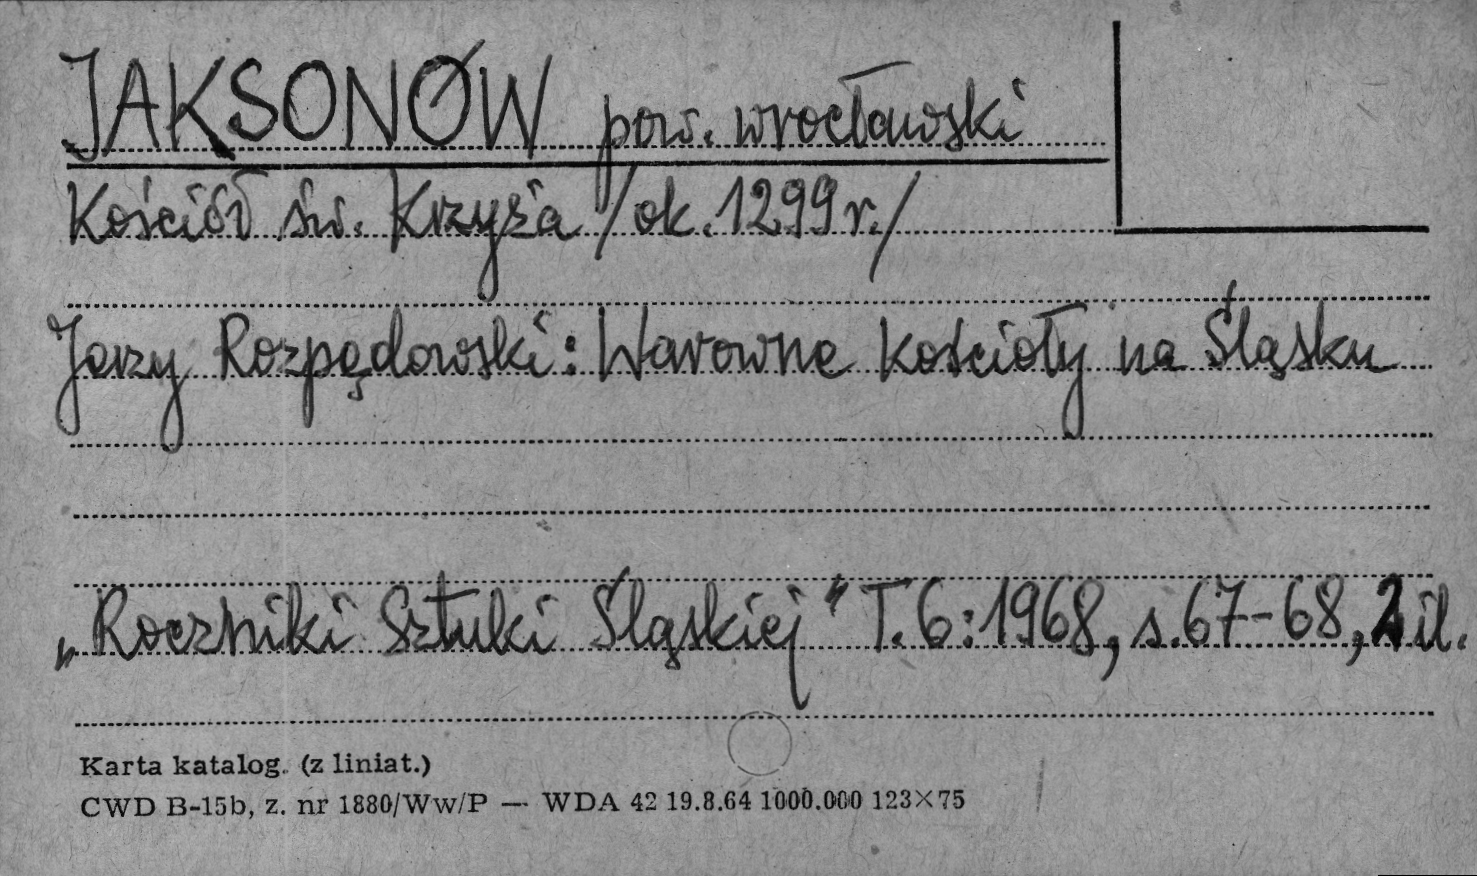 JAKSONÓW pow. wrocławski
Kościół św. Krzyża /ok. 1299 r./
Jerzy Rozpędowski: Warowne kościoły na Śląsku
„Roczniki Sztuki Śląskiej" T. 6: 1968, s. 67-68, 2 il.
Karta katalog. (z liniat.)
CWD B-15b, z. nr 1880/Ww/P — WDA 42 19.8.64 1000.000 123×75